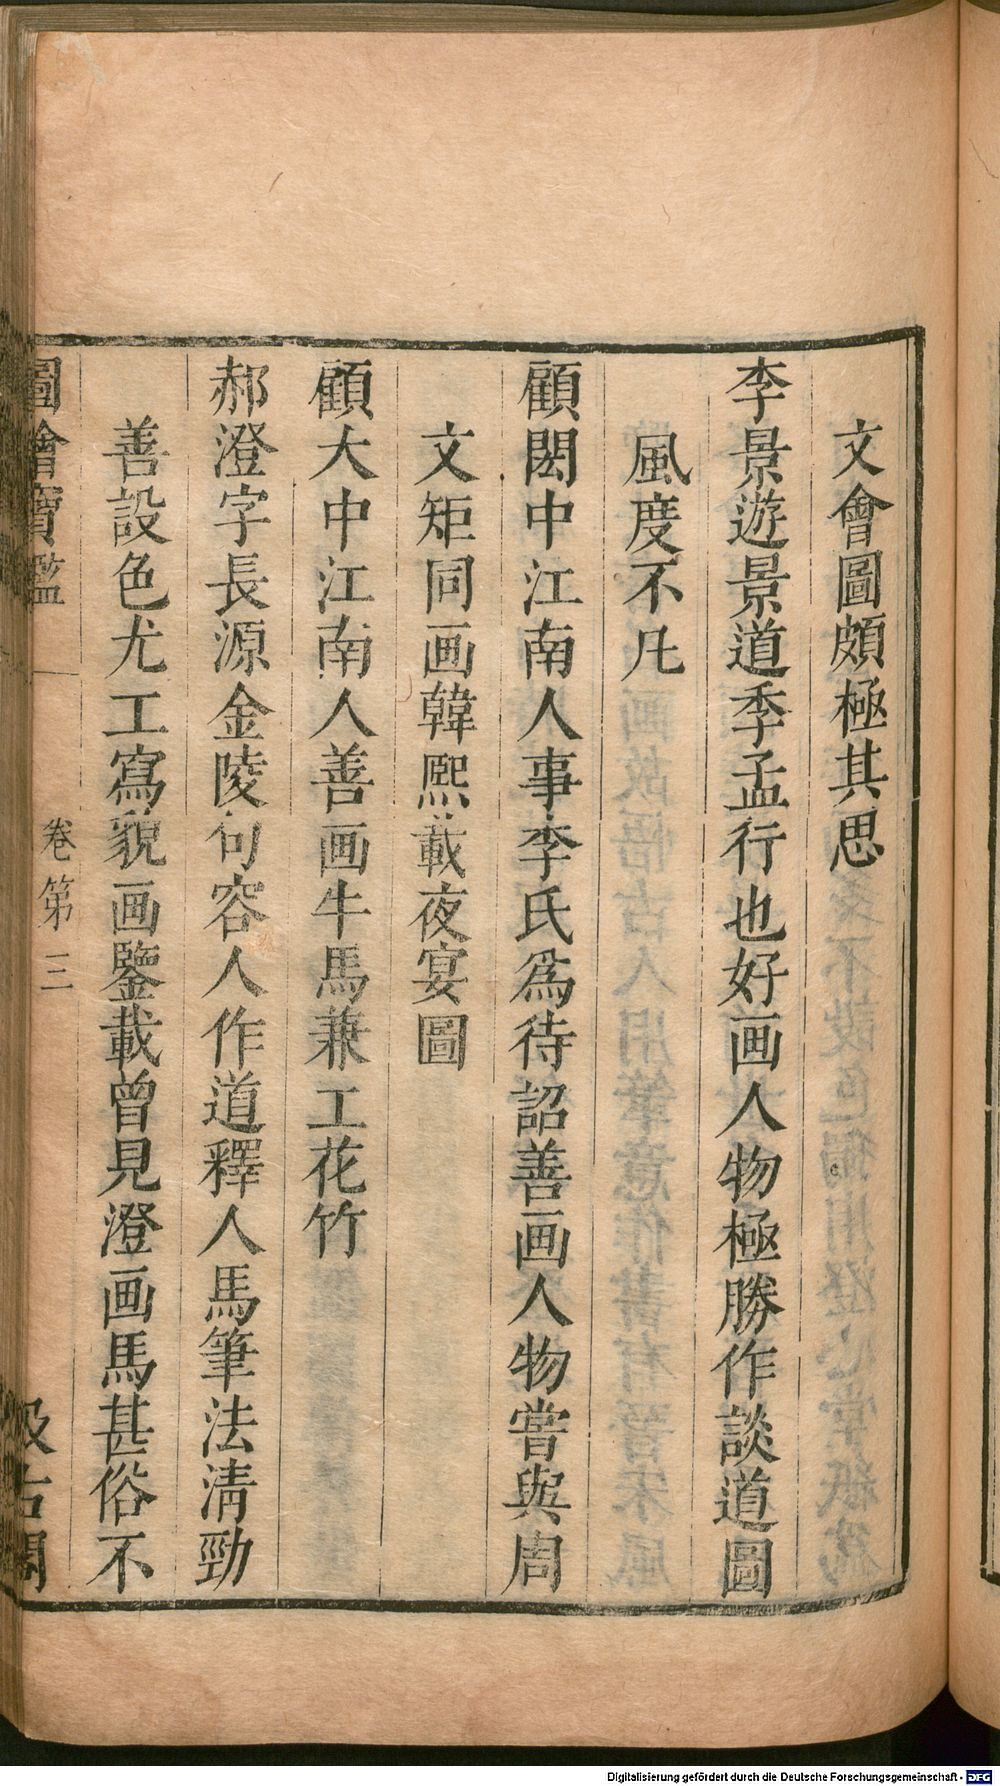 文會圖頗極其思
李景遊景道季孟行也好画人物極勝作談道圖
風度不凡
顧閎中江南人事李氏爲待詔善画人物嘗與周
文矩同画韓熙載夜宴圖
顧大中江南人善画牛馬兼工花竹
郝澄字長源金陵句容人作道釋人馬筆法淸勁
善設色尤工寫貌画鑒載曾見澄画馬甚俗不
圖繪寶鑑 卷第三 汲古閣
Digitalisierung gefördert durch die Deutsche Forschungsgemeinschaft - DFG